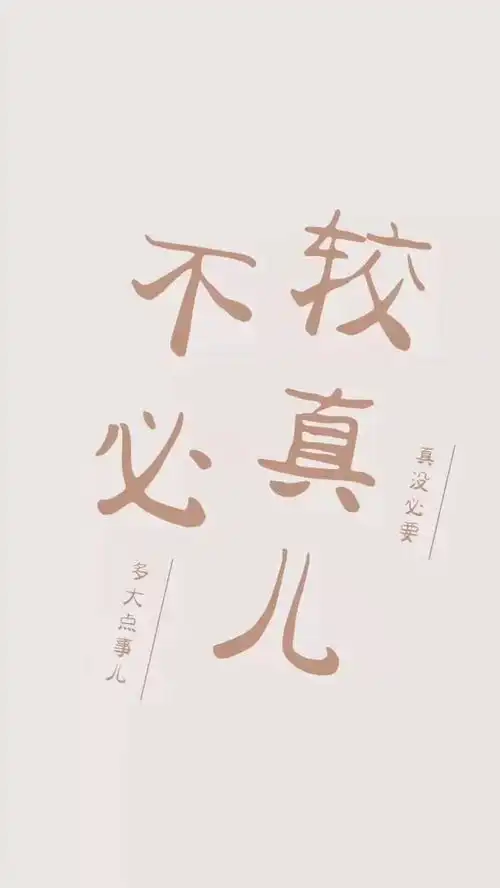 不必
较真儿
多大点事儿
真没必要